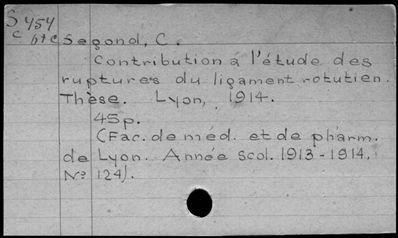 S 454
c pte
Segond, C.
Contribution á l'étude des
ruptures du ligament rotutien.
Thèse. Lyon, 1914.
45p.
(Fac. de méd. et de pharm.
de Lyon. Année scol. 1913-1914,
No 124).